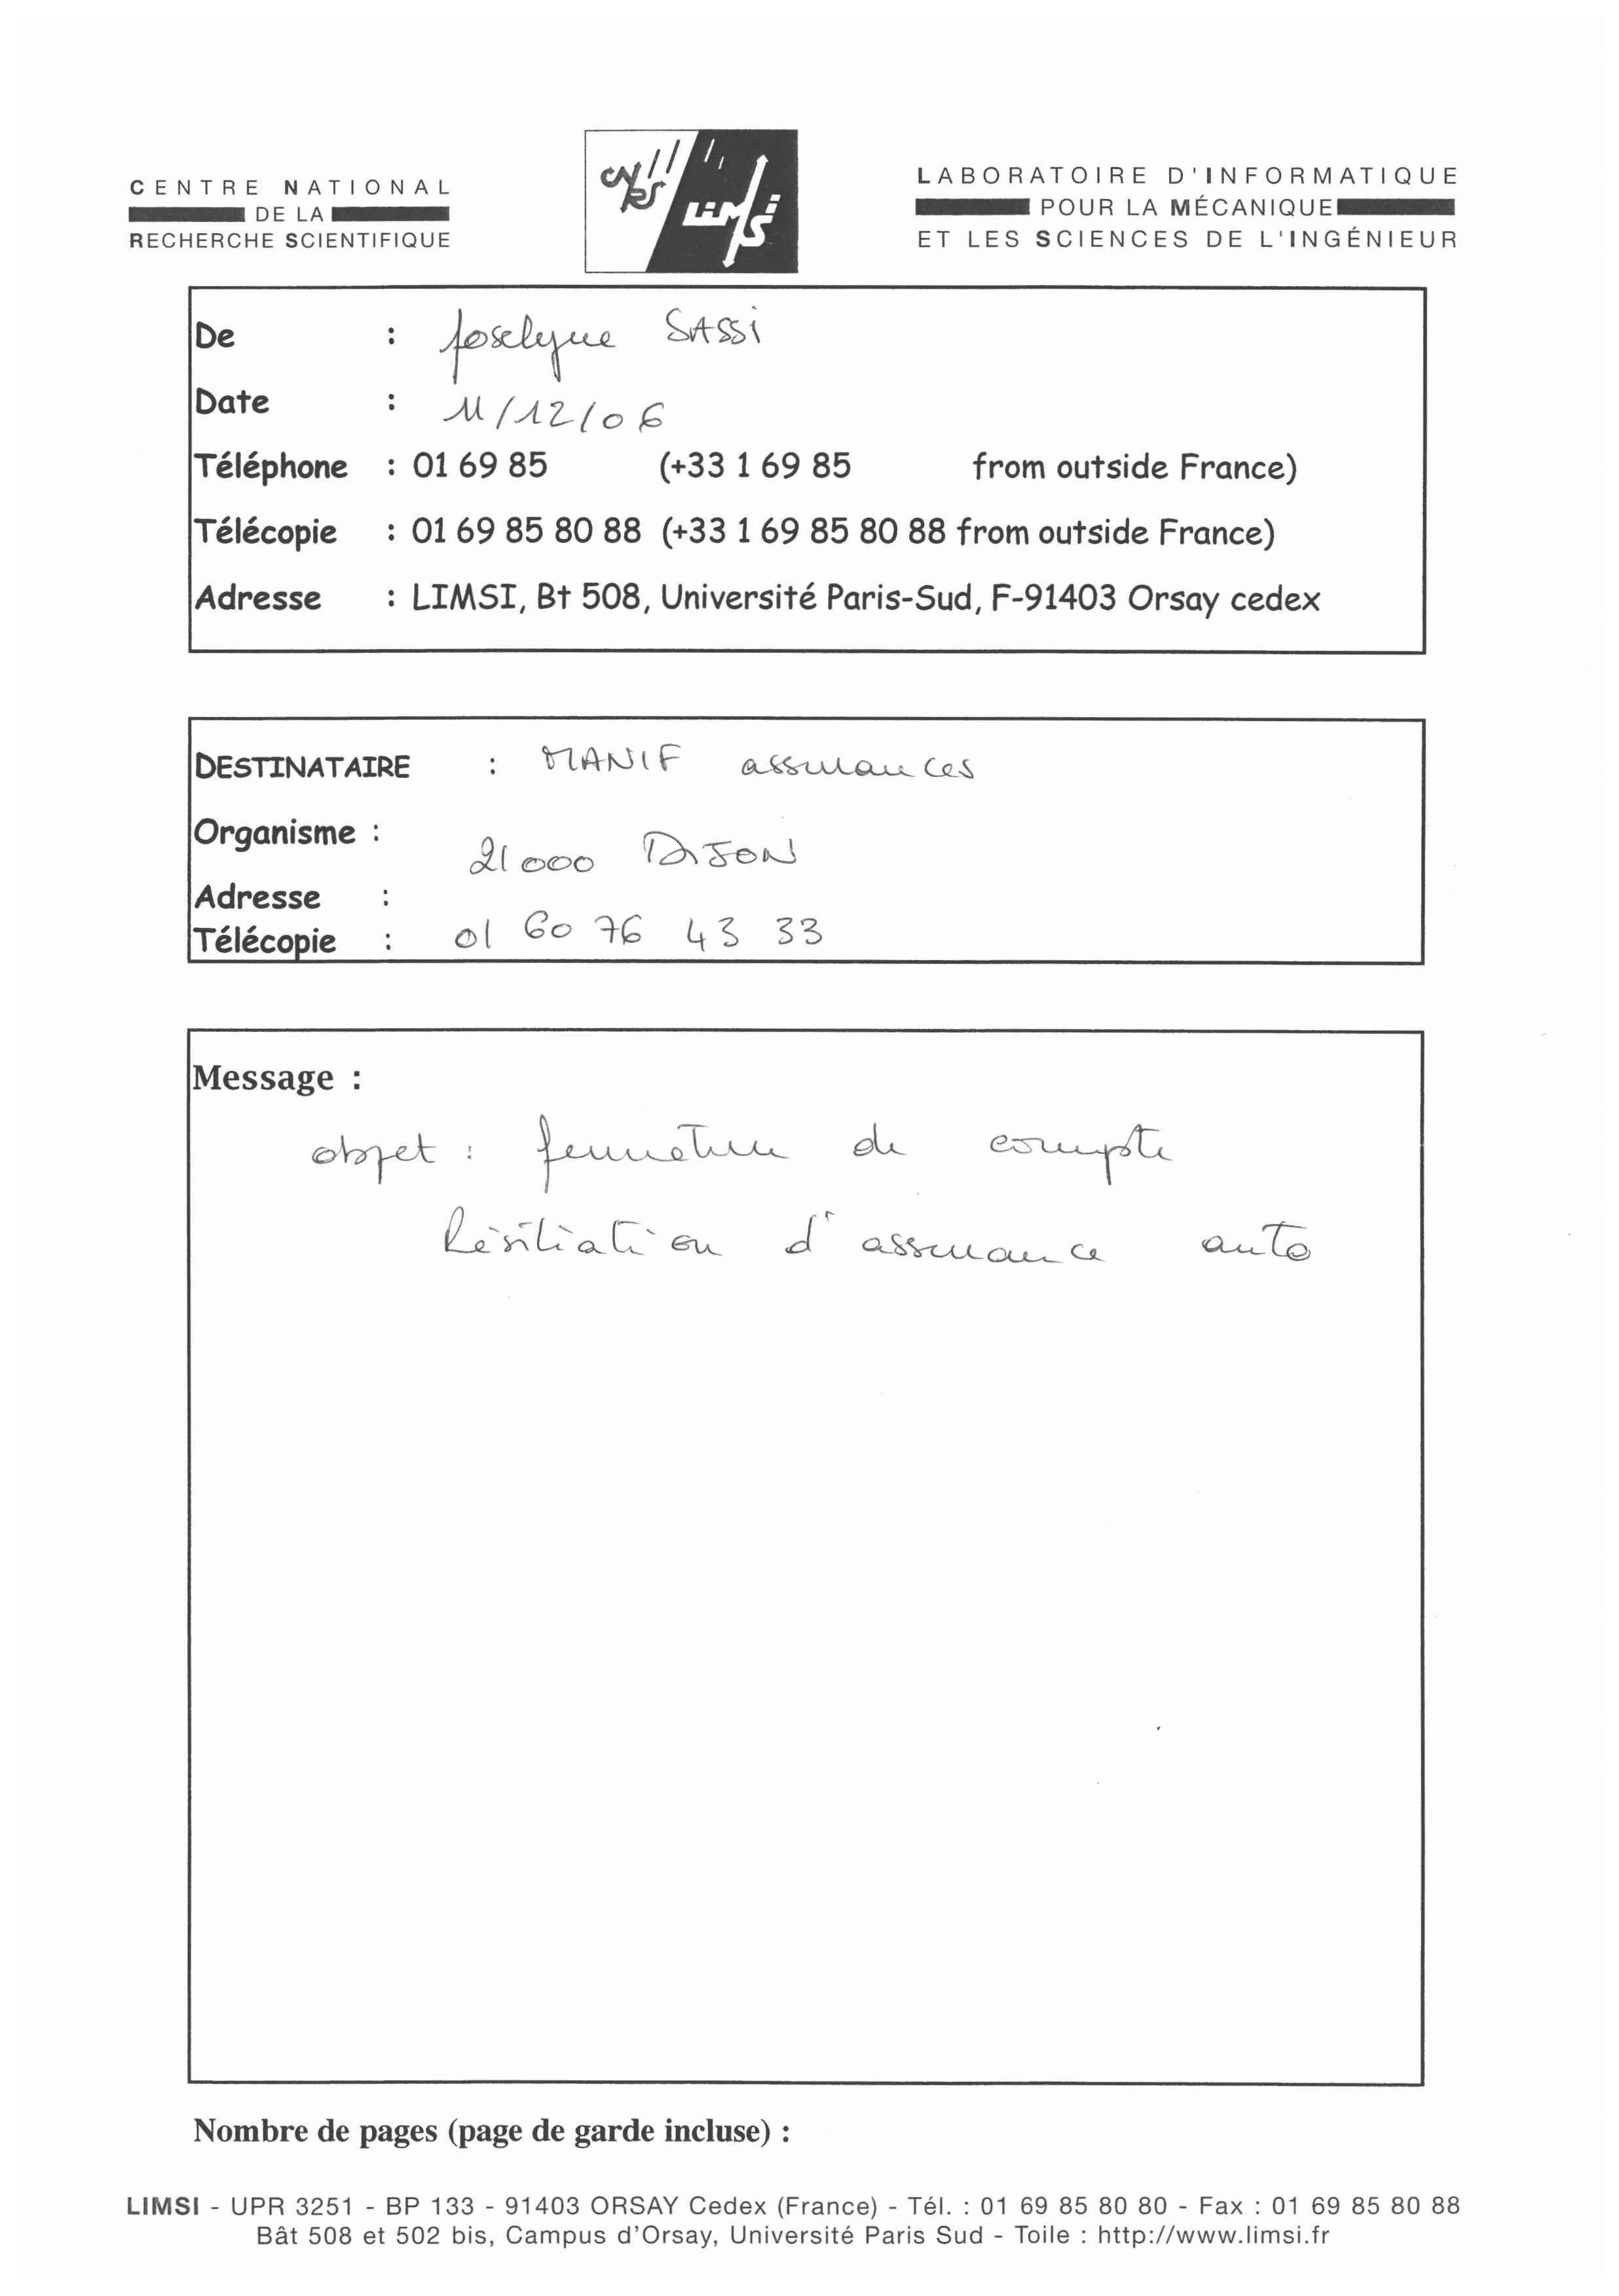 CENTRE NATIONAL
DE LA
RECHERCHE SCIENTIFIQUE
CNRS
LIMSI
LABORATOIRE D'INFORMATIQUE
POUR LA MÉCANIQUE
ET LES SCIENCES DE L'INGÉNIEUR
De : Joselyne SASSi
Date : 11/12/06
Téléphone : 01 69 85 (+33 1 69 85 from outside France)
Télécopie : 01 69 85 80 88 (+33 1 69 85 80 88 from outside France)
Adresse : LIMSI, Bt 508, Université Paris-Sud, F-91403 Orsay cedex
DESTINATAIRE : MANIF assurances
Organisme :
21000 DiJON
Adresse :
Télécopie : 01 60 76 43 33
Message :
objet : fermeture de compte
Résiliation d'assurance auto
Nombre de pages (page de garde incluse) :
LIMSI - UPR 3251 - BP 133 - 91403 ORSAY Cedex (France) - Tél. : 01 69 85 80 80 - Fax : 01 69 85 80 88
Bât 508 et 502 bis, Campus d'Orsay, Université Paris Sud - Toile : http://www.limsi.fr